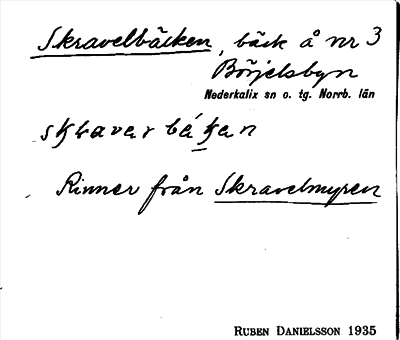 Skravelbäcken, bäck å nr 3
Börjelsbyn
Nederkalix sn o. tg. Norrb. län
Rinner från Skravelmyren
RUBEN DANIELSSON 1935